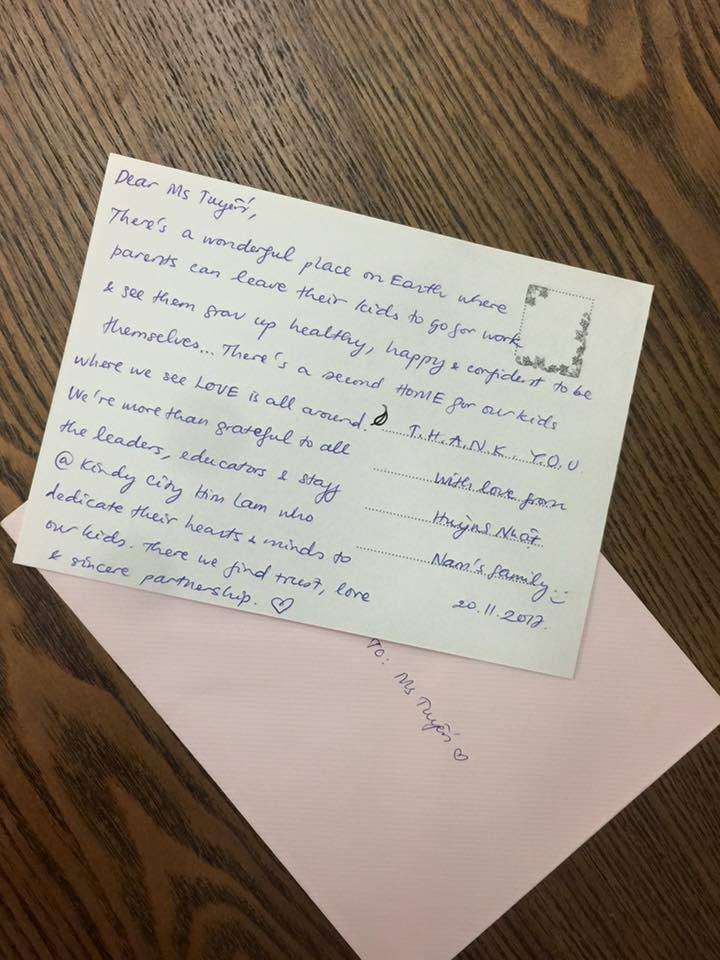 Dear Ms Tuyền,
There's a wonderful place on Earth where
parents can leave their kids to go for work
& see them grow up healthy, happy & confident to be
themselves... There's a second HOME for our kids
where we see LOVE is all around.
We're more than grateful to all
the leaders, educators & staff
@ Kindy City Him Lam who
dedicate their hearts & minds to
our kids. There we find trust, love
& sincere partnership. ♡
T.H.A.N.K. Y.O.U
With love from
Huỳnh Nhật
Nam's family :)
20.11.2017.
To: Ms Tuyền ♡